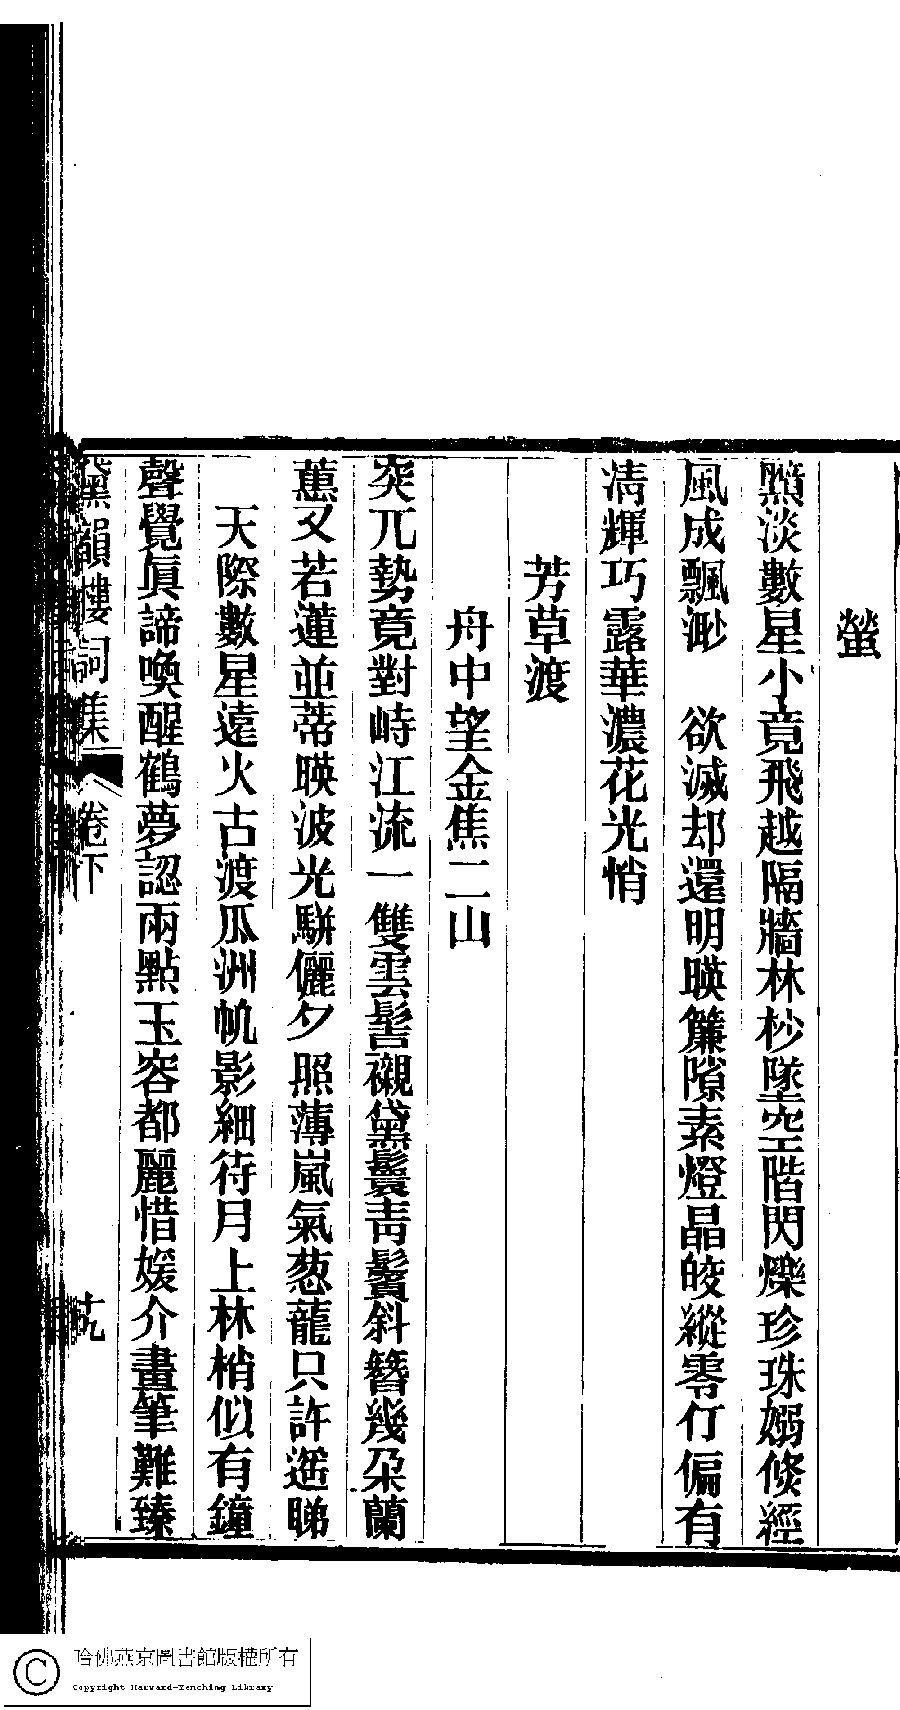 螢
黯淡數星小竟飛越隔牆林杪墜空階閃爍珍珠嫋倐經
風成飄渺　欲滅却還明暎簾隙素燈晶皎縱零仃偏有
清輝巧露華濃花光悄
芳草渡
舟中望金焦二山
突兀勢竟對峙江流一雙雲髻襯黛鬟青鬢斜簪幾朵蘭
蕙又若蓮並蒂暎波光駢儷夕照薄嵐氣葱蘢只許遥睇
天際數星遠火古渡瓜洲帆影細待月上林梢似有鐘
聲覺眞諦喚醒鶴夢認兩點玉容都麗惜媛介畫筆難臻
黛韻樓詞集　卷下　十九
哈佛燕京圖書館版權所有
Copyright Harvard-Yenching Library